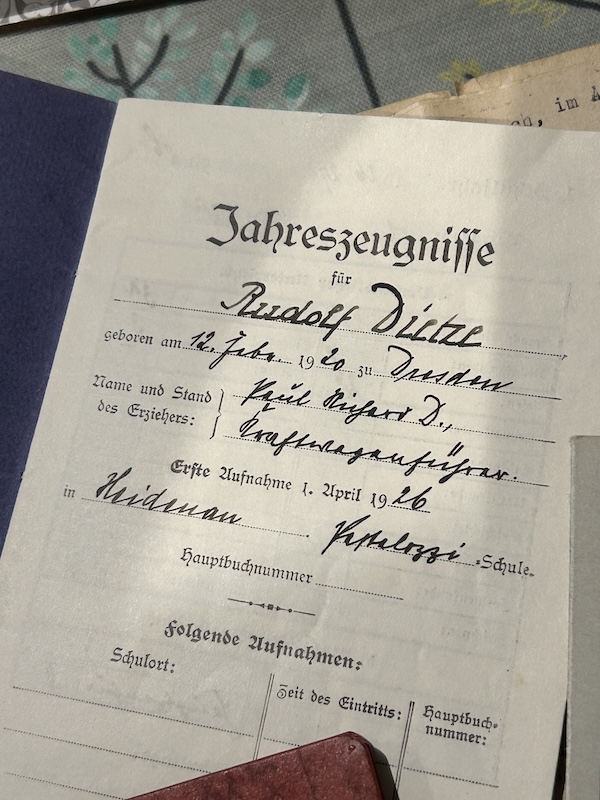 ch, im A
Jahreszeugnisse
für
Rudolf Dietze
geboren am 12. Febr. 1920 zu Dresden
Name und Stand des Erziehers: Paul Richard D.,
Kraftwagenführer.
Erste Aufnahme 1. April 1926
in Heidenau. Pestalozzi-Schule.
Hauptbuchnummer
Folgende Aufnahmen:
Schulort:
Zeit des Eintritts:
Hauptbuch-
nummer: